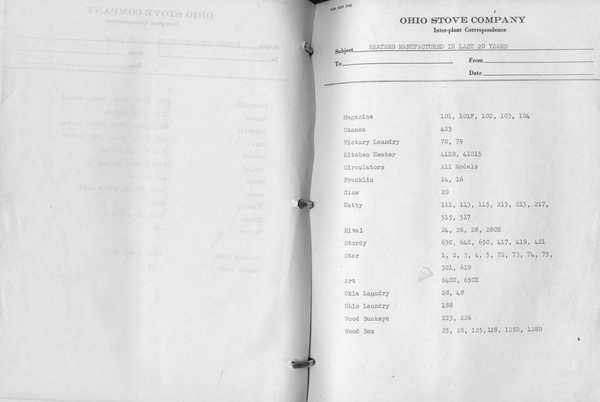 OHIO STOVE COMPANY
Inter-plant Correspondence
Subject HEATERS MANUFACTURED IN LAST 20 YEARS
To From
Date
Magazine 101, 101F, 102, 103, 104
Cannon 423
Victory Laundry 78, 79
Kitchen Heater 41SB, 41S15
Circulators All Models
Franklin 14, 16
Glow 20
Natty 111, 113, 115, 213, 215, 217,
515, 517
Rival 24, 26, 28, 28CH
Sturdy 63C, 64C, 65C, 417, 419, 421
Star 1, 2, 3, 4, 5, 72, 73, 74, 75,
321, 619
Art 64CH, 65CH
Okla Laundry 28, 48
Ohio Laundry 188
Wood Buckeye 223, 226
Wood Box 25, 28, 125, 128, 125D, 128D